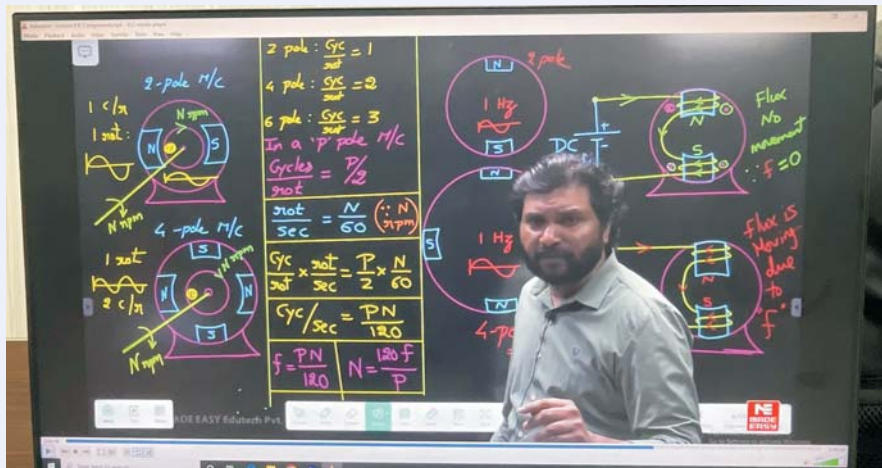 2-pole M/C
1 c/r
1 rot:
N rpm
N
S
N rpm
4-pole M/C
1 rot
2 c/r
S
N rpm
N
N
S
N rpm
2 pole : Cyc/rot = 1
4 pole : Cyc/rot = 2
6 pole : Cyc/rot = 3
In a 'p' pole M/C
Cycles/rot = P/2
rot/sec = N/60 (∵ N rpm)
Cyc/rot × rot/sec = P/2 × N/60
Cyc/sec = PN/120
f = PN/120
N = 120f/P
N
2 pole
1 Hz
S
N
S
1 Hz
N
4-po
DC
+
N
S
Flux
No
movement
∵ f = 0
N
S
flux is
Moving
due
to
"f"
ADE EASY Edutech Pvt.
NE
MADE
EASY